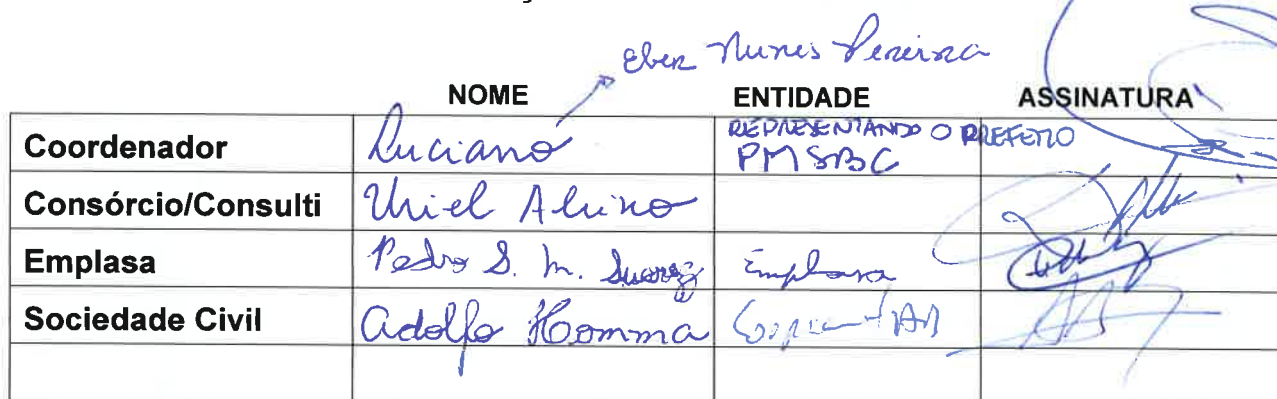 Eber Nunes Pereira
NOME ENTIDADE ASSINATURA
Coordenador Luciano REPRESENTANDO O PREFEITO
PMSBC
Consórcio/Consulti Uriel
Emplasa Pedro S. M. Emplasa
Sociedade Civil Adolfo Homma